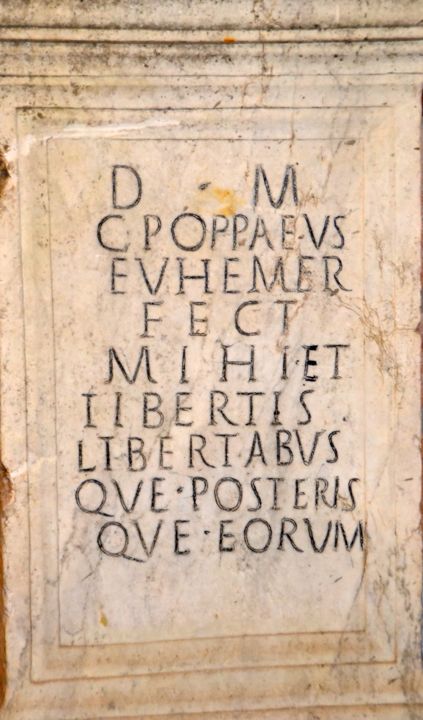 D · M
C POPPAEVS
EVHEMER
FECT
MIHI ET
IIBERTIS
LIBERTABVS
QVE·POSTERIS
QVE·EORVM